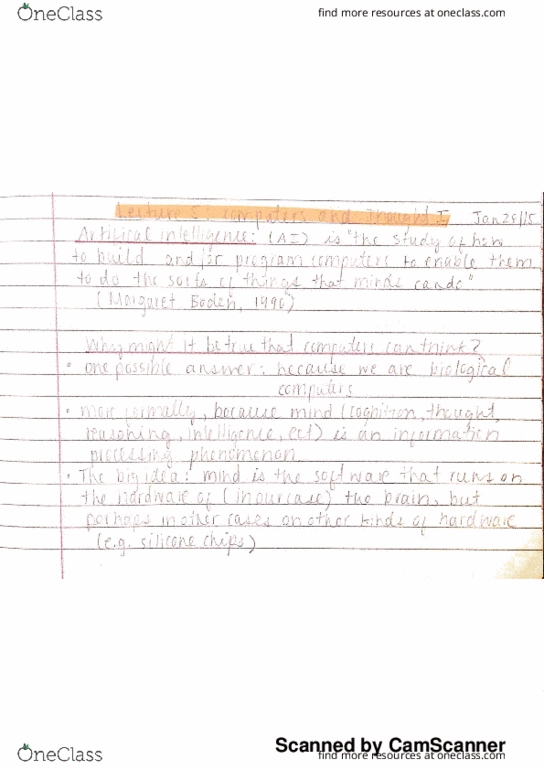 OneClass
find more resources at oneclass.com
Lecture 5: Computers and Thought I Jan 28/15
Artifical intelligence: (AI) is "the study of how
to build and/or program computers to enable them
to do the sorts of things that minds can do"
(Margaret Boden, 1990)
Why might it be true that computers can think?
• one possible answer: because we are biological
computers
• more formally, because mind (cognition, thought,
reasoning, intelligence, ect) is an information
processing phenomenon.
• The big idea: mind is the software that runs on
the hardware of (in our case) the brain, but
perhaps in other cases on other kinds of hardware
(e.g. silicone chips)
Scanned by CamScanner
OneClass
find more resources at oneclass.com